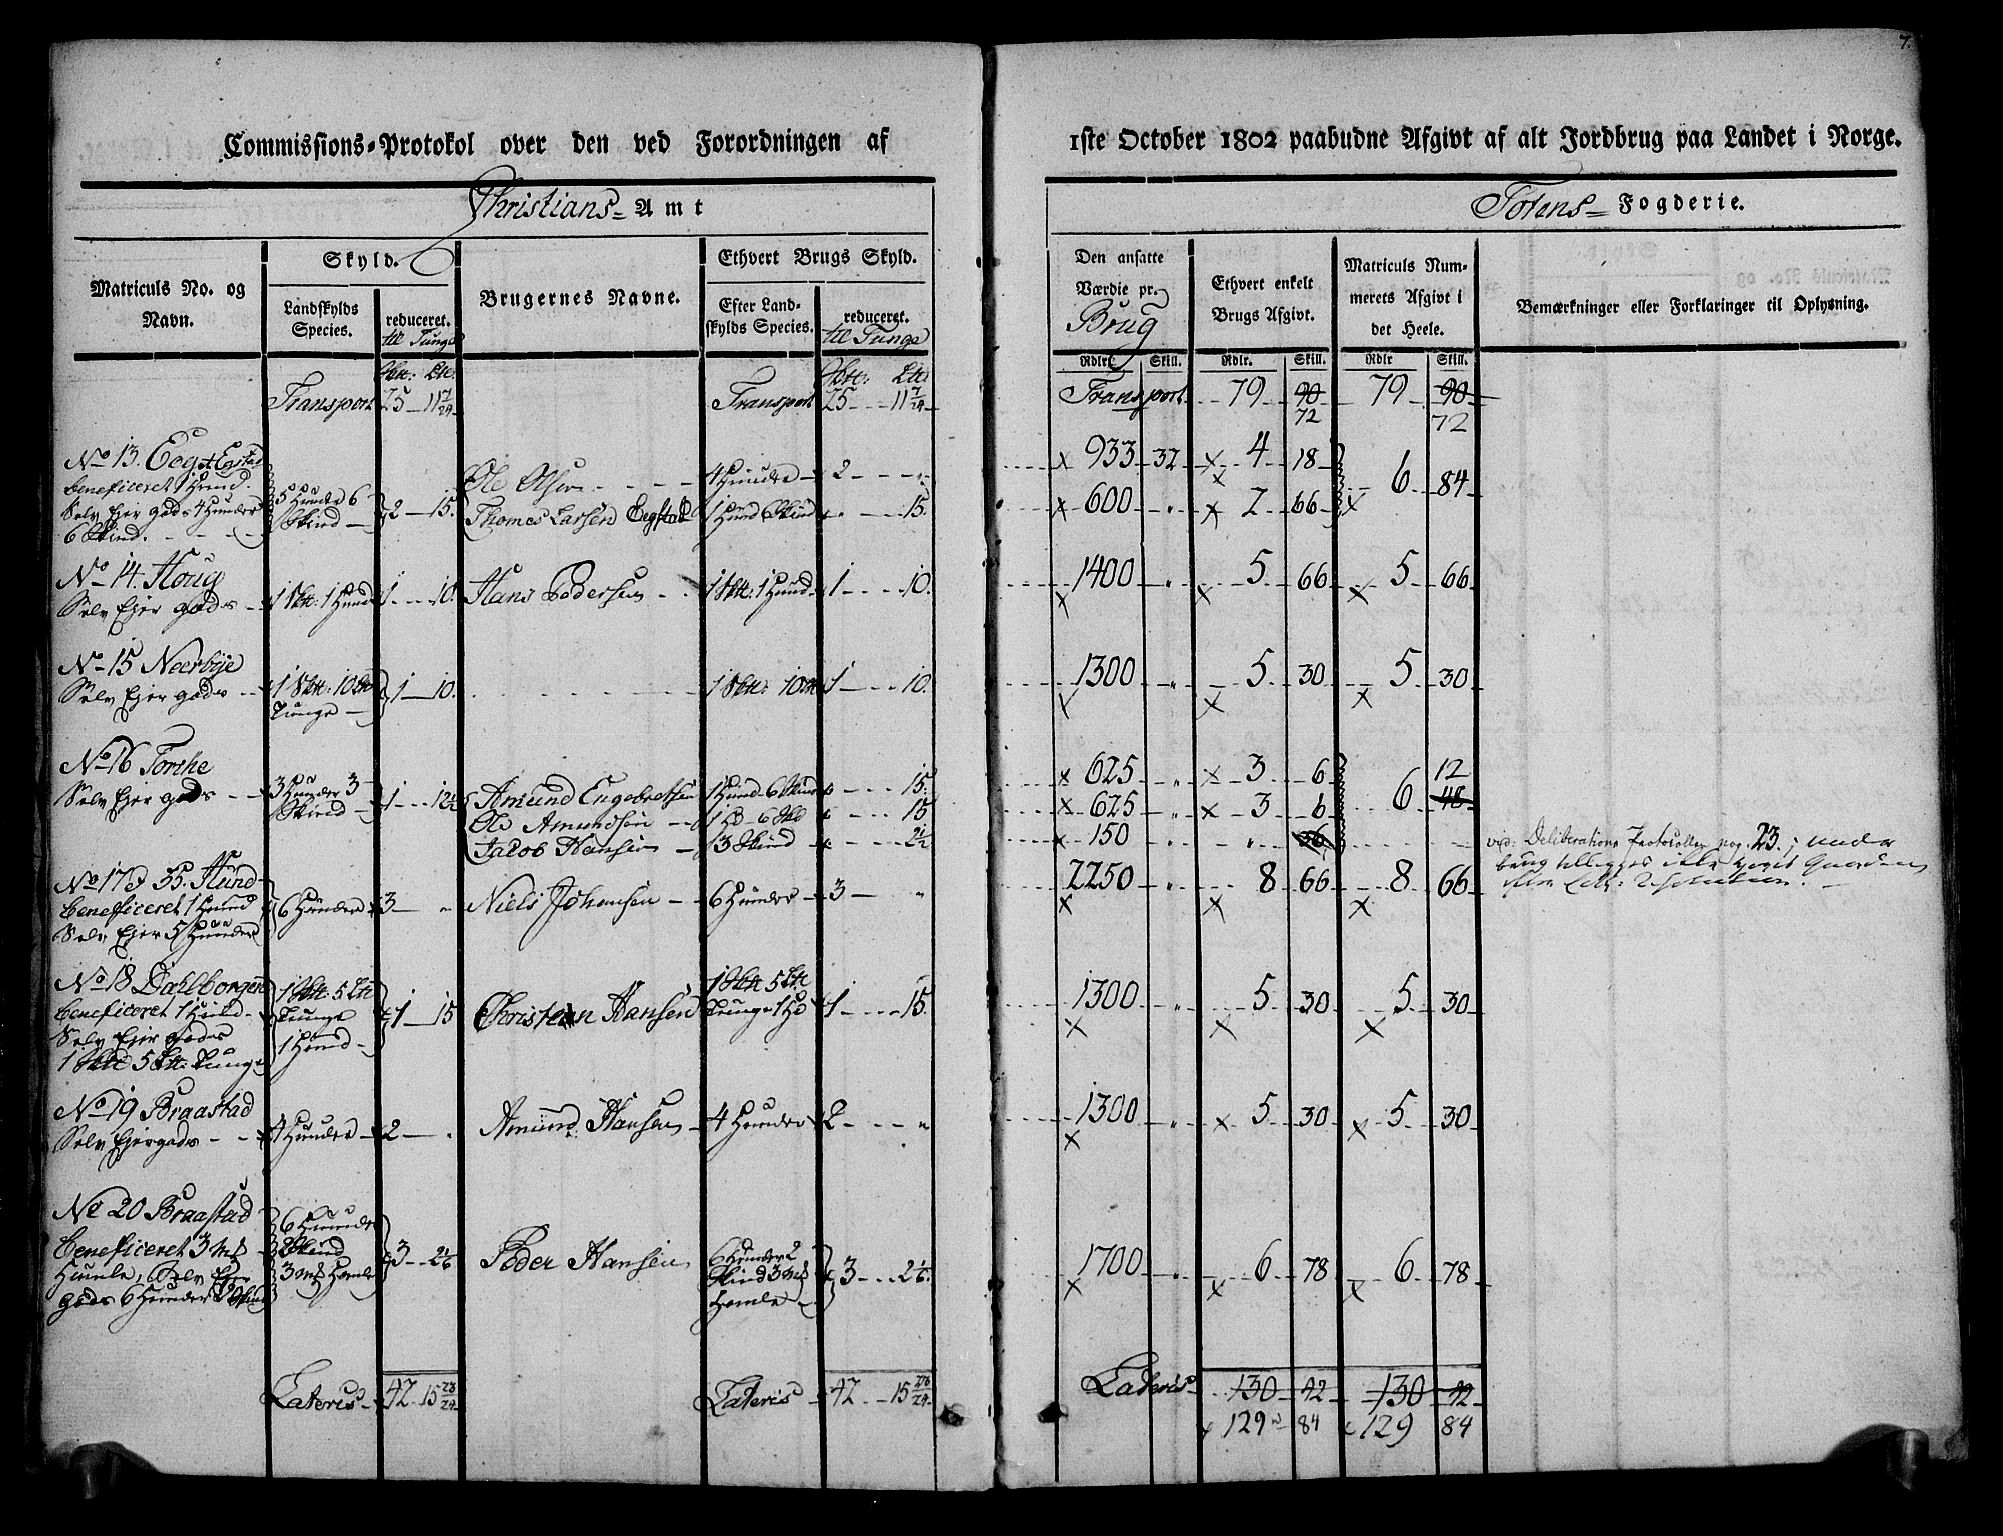 7.
Commissions-Protokol over den ved Forordningen af 1ste October 1802 paabudne Afgivt af alt Jordbrug paa Landet i Norge.
Christians- Amt
Totens- Fogderie.
Matriculs No. og Navn.
Skyld.
Landskylds Species.
reduceret. til Tunge
Brugernes Navne.
Ethvert Brugs Skyld.
Efter Landskylds Species.
reduceret. til Tunge
Den ansatte Værdie pr. Brug
Ethvert enkelt Brugs Afgivt.
Matriculs Nummerets Afgivt i det Heele.
Bemærkninger eller Forklaringer til Oplysning.
Rdlr. Skill. Rdlr. Skill. Rdlr Skill.
Transport 25 - 11 7/24 Transport 25 - 11 7/24 Transport 79 90 79 90
72 72
No 13. Eeg
beneficeret 1 Hund
Selv Ejer gods 4 Hunder
6 Skind.
5 Hunde 6
Skind - 2 - 15.
Ole Olsen 4 Hunder 2 - „ 933 32 4 18 6 84
Thomes Larsen Eegstad 1 Hund 6 Skind „ 15. 600 „ 2 66
No 14. Houg
Selv Ejer gods 1 Skt: 1 Hund 1 - 10. Hans Pedersen 1 Skt: 1 Hund 1 - 10. 1400 „ 5 66 5 66
No 15 Neerbye
Selv Ejer gods 1 Skt: 10 Lt
Tunge 1 - 10. 1 Skt: 10 Lt 1 - 10. 1300 „ 5 30 5 30
No 16 Torche
Selv Ejer gods 3 Hunder 3
Skind 1 - 12½
Amund Engebretsen 1 Hund 6 Skind „ 15. 625 „ 3 6 6 12
48
Ole Amundsen 1 Hd 6 Skd „ 15 625 „ 3 6
Jacob Hansen 3 Skind „ 2½ 150 „ „ 36
vid: Deliberations Protocollen pag. 23.
No 17 & 35. Hund
beneficeret 1 Hund
Selv Ejer 5 Hunder
6 Hunder 3 - „ Niels Johansen 6 Hunder 3 - „ 2250 „ 8 66 8 66
No 18 Dahlborgen
beneficeret 1 Hund
Selv Ejer gods
1 Skt 5 Lt: Tunge
1 Skt 5 Lt
Tunge
1 Hund 1 - 15
Christian Hansen 1 Skt 5 Lt
Tunge 1 Hd 1 - 15. 1300 „ 5 30 5 30
No 19 Braastad
Selv Ejer gods 4 Hunder 2 - „ Amund Hansen 4 Hunder 2 - „ 1300 „ 5 30 5 30
No 20 Braastad
beneficeret 3 mk
Humle, Selv Ejer
gods 6 Hunder 2 Skind
6 Hunder
2 Skind
3 mk Homle 3 - 2 1/6
Peder Hansen 6 Hunder 2
Skind 3 mk
Homle 3 - 2 1/6. 1700 „ 6 78 6 78
Lateris 42 15 23/24 Lateris 42 - 15 23/24 Lateris 130 42 130 42
129 84 129 84